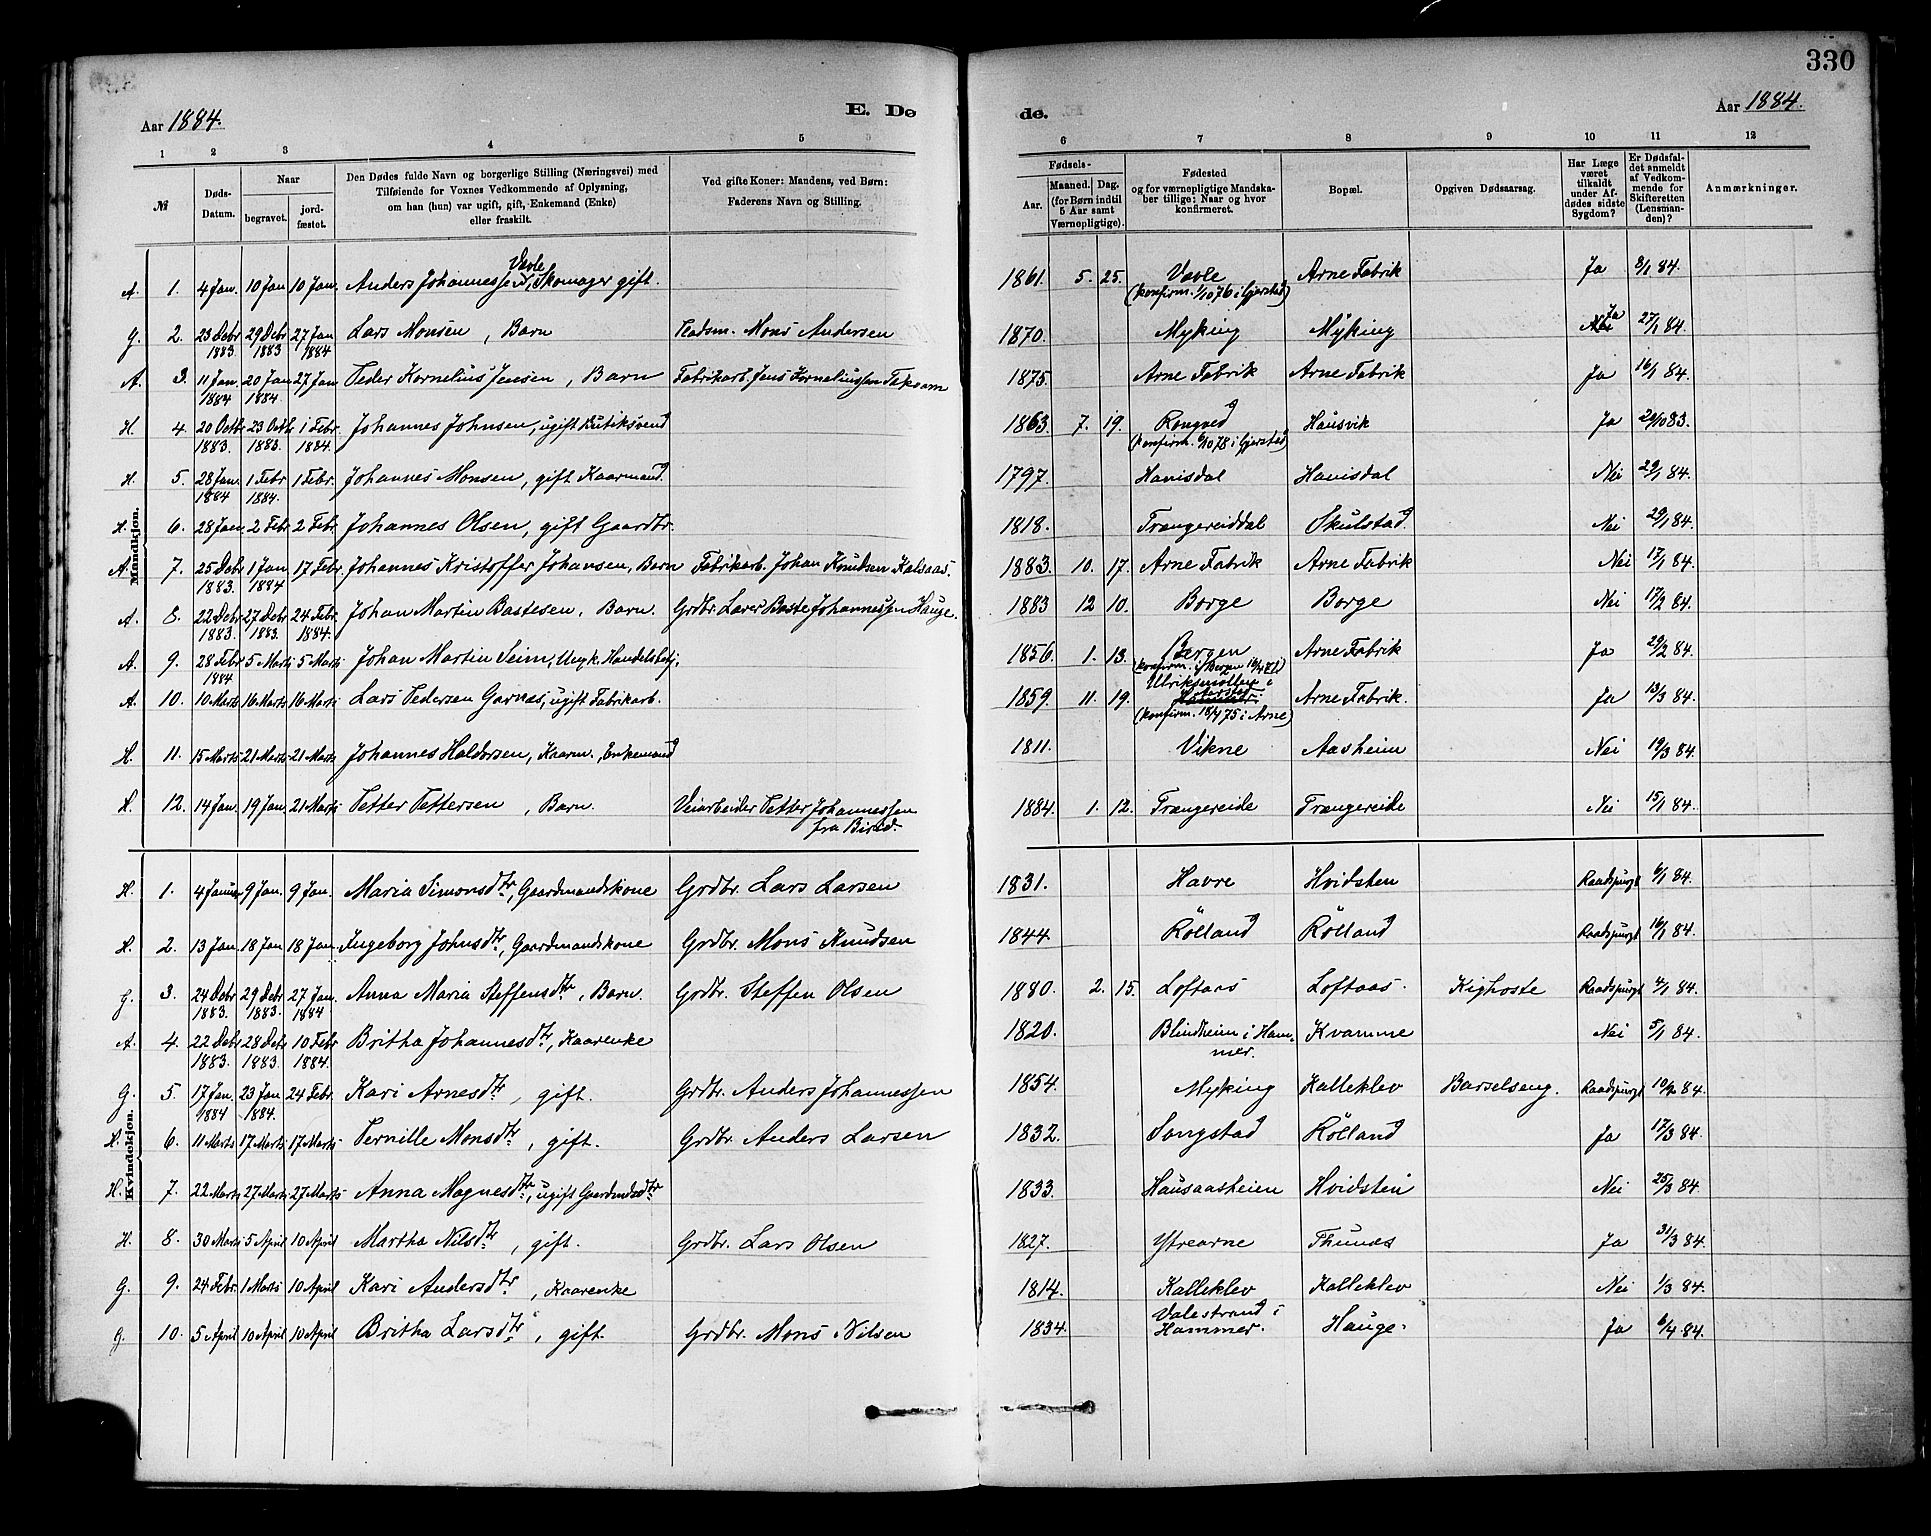 330
Aar 1884.
E. Dø
de.
Aar 1884.
1 2 3 4 5 6 7 8 9 10 11 12
№
Døds-Datum.
Naar
begravet.
jord-fæstet.
Den Dødes fulde Navn og borgerlige Stilling (Næringsvei) med
Tilføiende for Voxnes Vedkommende af Oplysning,
om han (hun) var ugift, gift, Enkemand (Enke)
eller fraskilt.
Ved gifte Koner: Mandens, ved Børn:
Faderens Navn og Stilling.
Fødsels-
Aar.
Maaned. Dag.
(for Børn indtil
5 Aar samt
Værnepligtige).
Fødested
og for værnepligtige Mandska-
ber tillige: Naar og hvor
konfirmeret.
Bopæl.
Opgiven Dødsaarsag.
Har Læge
været
tilkaldt
under Af-
dødes sidste
Sygdom?
Er Dødsfal-
det anmeldt
af Vedkom-
mende for
Skifteretten
(Lensman-
den)?
Anmærkninger.
Mandkjøn.
A. 1. 4 Jan. 10 Jan 10 Jan. Anders Johannessen Vavle, Skomager gift. 1861. 5. 25. Vavle (konfirm. 1/10 76 i Gjerstad) Arne Fabrik Ja 8/1 84.
G. 2. 23 Debr 1883. 29 Debr 1883 27 Jan 1884 Lars Monsen, Barn Ledsm. Mons Andersen 1870. Myking Myking Nei Ja 27/1 84.
A. 3. 11 Jan. 1884 20 Jan 1884. 27 Jan Peder Kornelius Jensen, Barn Fabrikarb. Jens Korneliussen Takvam 1875. Arne Fabrik Arne Fabrik Ja 16/1 84.
H. 4. 20 Octb. 1883. 23 Octb. 1883. 1 Febr. 1884. Johannes Johnsen, ugift Butiksvend 1863. 7. 19. Rongved (konfirm. 6/10 78 i Gjerstad) Hausvik Ja 29/10 83.
H. 5. 28 Jan. 1884 1 Febr 1884. 1 Febr. Johannes Monsen, gift Kaarmand. 1797. Hanisdal Hanisdal Nei 29/1 84.
H. 6. 28 Jan. 2 Febr 2 Febr. Johannes Olsen, gift Gaardbr. 1818. Trengereiddal Skulstad. Nei 29/1 84.
A. 7. 25 Debr 1883. 1 Jan 1884 17 Febr. Johannes Kristoffer Johansen, Barn Fabrikarb. Johan Knudsen Kalsaas. 1883. 10. 17. Arne Fabrik Arne Fabrik Nei 17/1 84.
A. 8. 22 Debr 1883. 27 Debr 1883. 24 Febr 1884. Johan Martin Bastesen, Barn. Grdbr. Lars Baste Johannessen Hauge. 1883 12 10. Borge Borge Nei 17/2 84.
A. 9. 28 Febr 1884 5 Marts 5 Marts Johan Martin Seim, Ungk. Handelsbetj. 1856. 1. 13. Bergen (konfirm. i Bergen) Arne Fabrik Ja 29/2 84.
A. 10. 10 Marts 16 Marts 16 Marts Lars Pedersen Garnes, ugift Fabrikarb. 1859. 11. 19. Ulriksmøllen i Aarstad. (konfirm. 18/4 75 i Arne) Arne Fabrik. Ja 13/3 84.
H. 11. 15 Marts 21 Marts 21 Marts Johannes Haldorsen, Kaarm., Enkemand 1811. Vikne Aasheim Nei 19/3 84.
H. 12. 14 Jan. 19 Jan. 21 Marts Petter Pettersen, Barn. Veiarbeider Petter Johannessen fra Birid. 1884. 1. 12. Trengereide Trængereide Nei 15/1 84.
Kvindekjøn.
H. 1. 4 Januar 9 Jan. 9 Jan. Maria Simonsdtr., Gaardmandskone Grdbr. Lars Larsen 1831. Havre Hvidsten Raadspurgt 6/1 84.
H. 2. 13 Jan. 18 Jan 18 Jan. Ingeborg Johnsdtr., Gaardmandskone Grdbr. Mons Knudsen 1844. Rölland Rölland Raadspurgt 16/1 84.
G. 3. 24 Debr 1883. 29 Debr 1883. 27 Jan. 1884 Anna Maria Steffensdtr., Barn. Grdbr. Steffen Olsen 1880. 2. 15. Loftaas Loftaas. Kighoste Raadspurgt 4/1 84.
A. 4. 22 Debr 1883. 28 Debr 1883. 10 Febr 1884. Britha Johannesdtr., Kaarenke 1820. Blindheim i Hammer. Kvamme Nei 5/1 84.
G. 5. 17 Jan. 1884 23 Jan 1884. 24 Febr. Kari Arnesdtr., gift. Grdbr. Anders Johannessen 1854. Myking Kalleklev Barselseng. Raadspurgt 10/2 84.
H. 6. 11 Marts 17 Marts 17 Marts Pernille Monsdtr., gift. Grdbr. Anders Larsen 1832. Songstad Rölland Ja 17/3 84.
H. 7. 22 Marts 27 Marts 27 Marts Anna Magnesdtr., ugift Gaardmdsdtr. 1833. Hausaasheien Hvidsten Nei 25/3 84.
H. 8. 30 Marts 5 April 10 April Martha Nilsdtr., gift. Grdbr. Lars Olsen 1827. Ytrearne Thunes Ja 31/3 84.
G. 9. 24 Febr. 1 Marts 10 April Kari Andersdtr, Kaarenke 1814. Kalleklev Kalleklev Nei 1/3 84.
G. 10. 5 April 10 April 10 April Britha Larsdtr., gift. Grdbr. Mons Nilsen 1834. Valestrand i Hammer. Hauge. Ja 6/4 84.